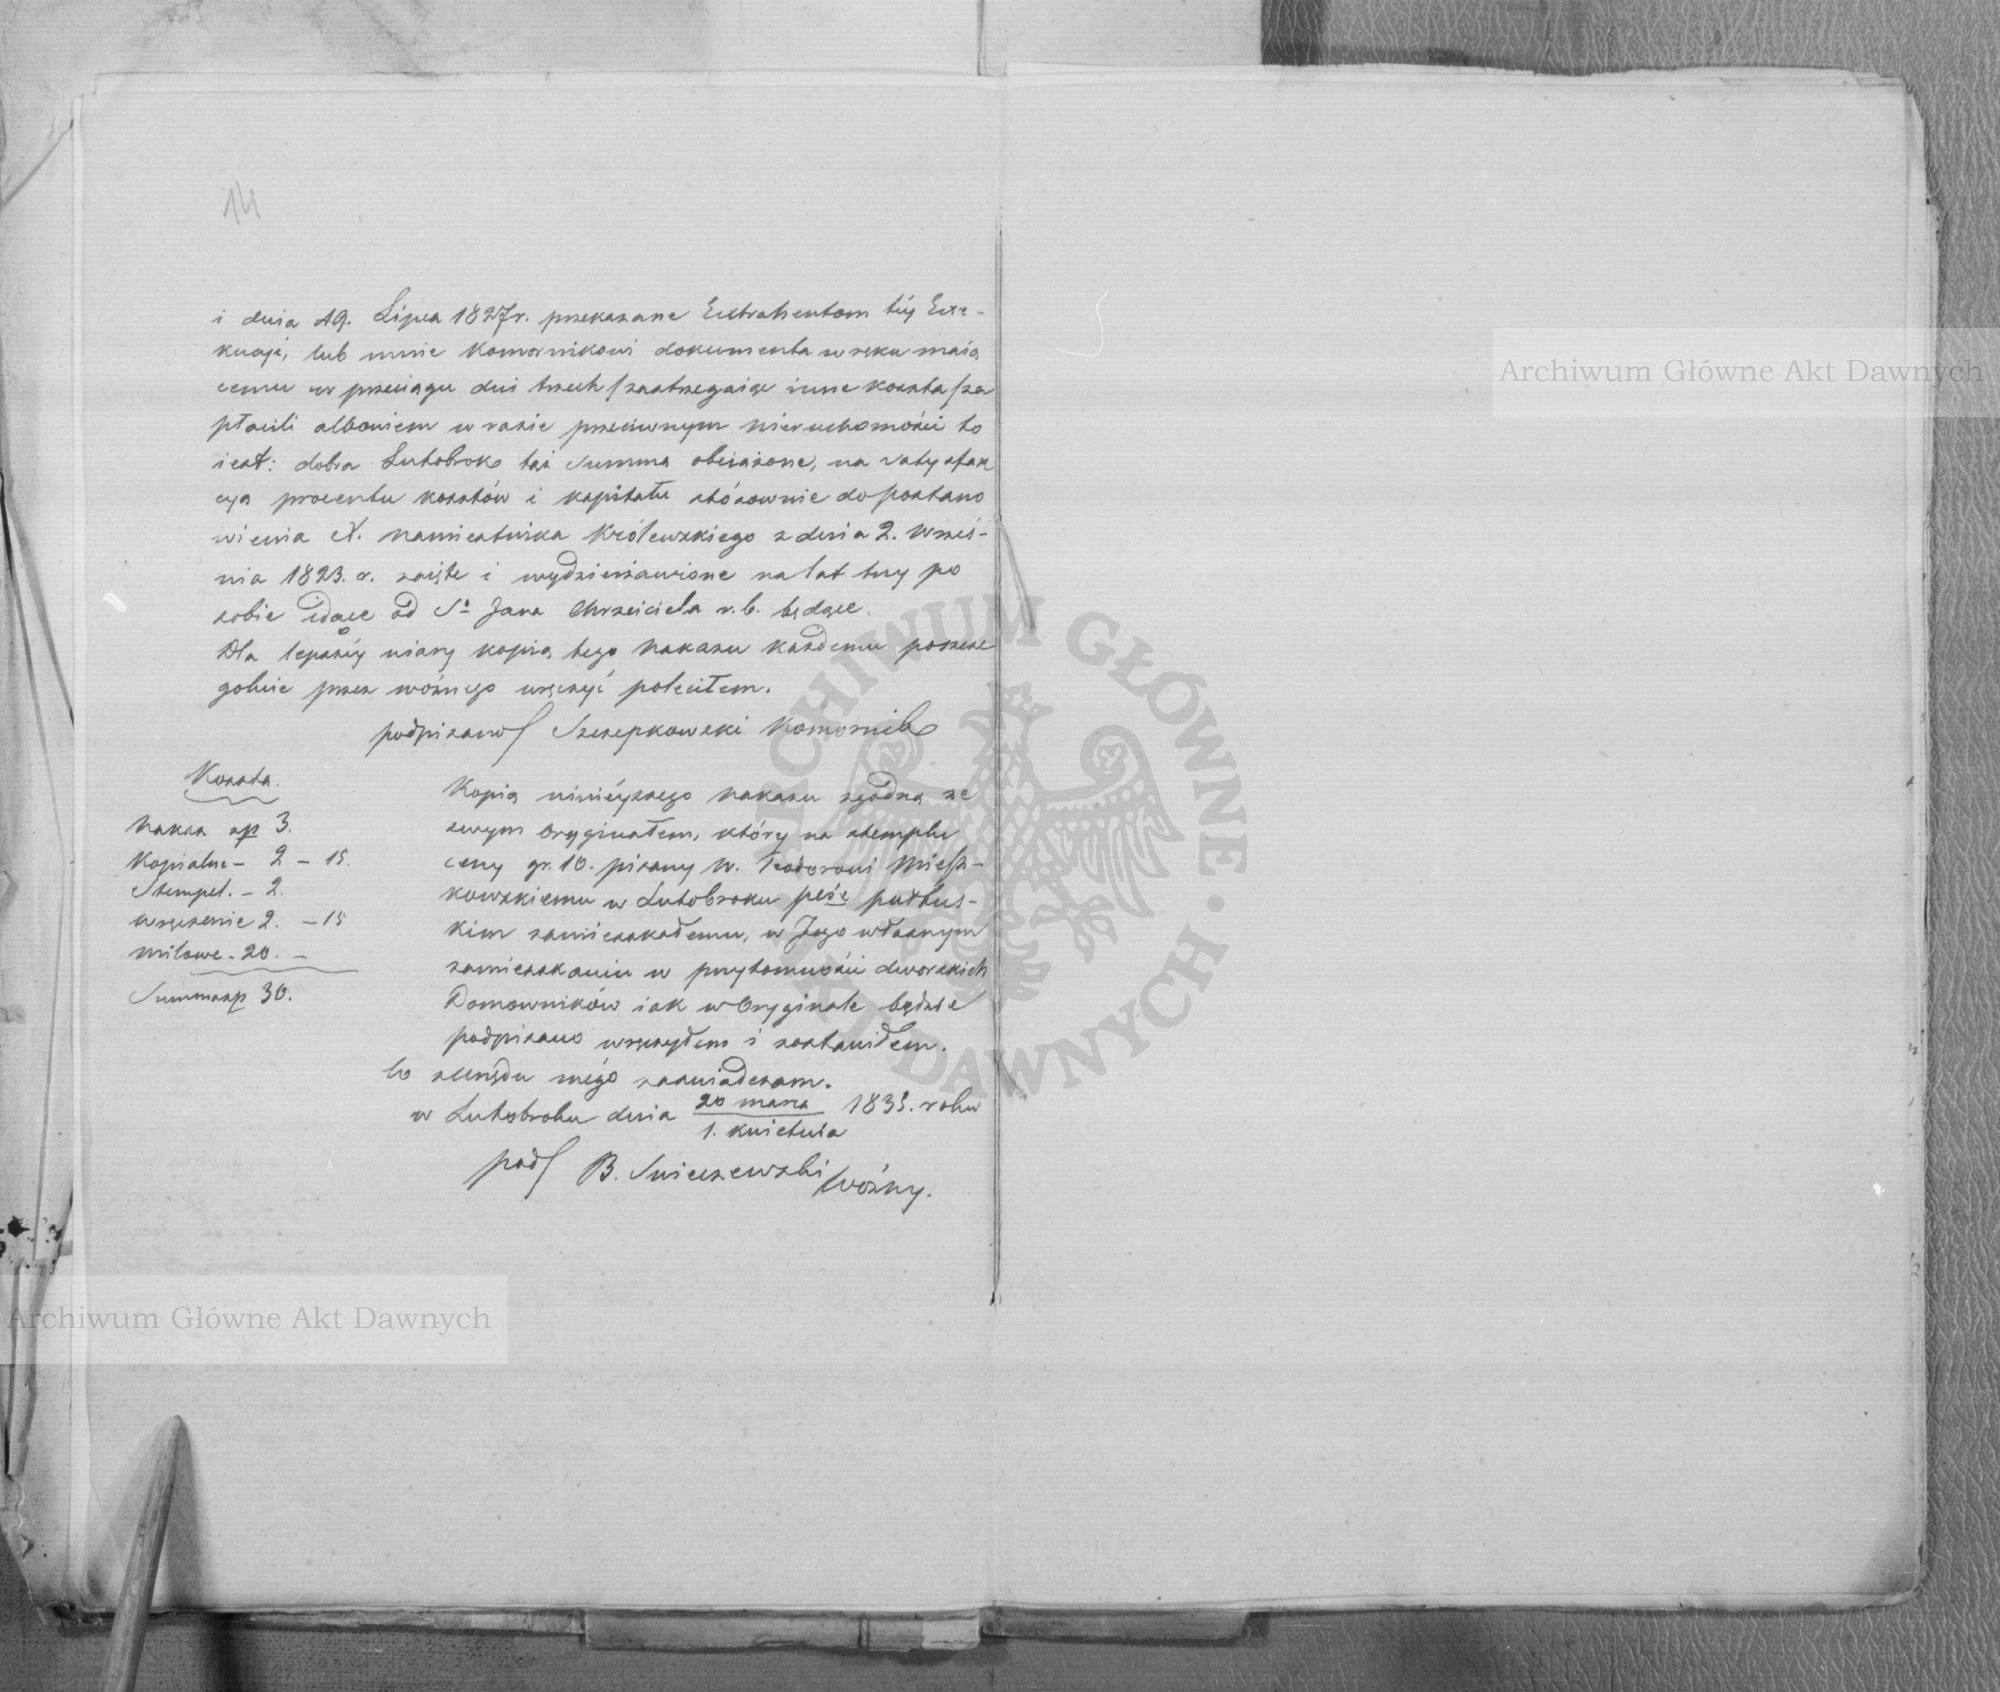 14
i dnia 19. Lipca 1827r. przekazane Extrahentom téy Exe-
kucyi, lub mnie Komornikowi dokumenta w ręku maią
cemu w przeciągu dni trzech /zastrzegaiąc inne koszta/ za
płacili albowiem w razie przeciwnym nieruchomości to
iest: dobra Lutobrok taż Summą obciążone, na satysfak
cyą procentu kosztów i kapitału stósownie do postano
wienia X. Namiestnika Królewskiego z dnia 2. Wrześ-
nia 1823. r. zaięte i wydzierżawione na lat trzy po
sobie idące od St. Jana Chrzciciela r.b. będące.
Dla lepszéy wiary kopią tego Nakazu każdemu poszcze
gólnie przez woźnego wręczyć poleciłem.
podpisano/ Szczepkowski Komornik
Koszta.
Nakaz zp 3.
Kopialne - 2 - 15.
Stempel. - 2.
wręczenie 2. - 15
milowe - 20. -
Summa zp 30.
Kopią ninieyszego Nakazu zgodną ze
swym Oryginałem, który na stemplu
ceny gr. 10. pisany W. Teodorowi Miesz-
kowskiemu w Lutobroku pcie pułtus-
kim zamieszkałemu, w Jego własnym
zamieszkaniu w przytomności dworskich
Domowników iak w Oryginale będzie
podpisano wręczyłem i zostawiłem.
Co z Urzędu mégo zaświadczam.
w Lutobroku dnia 20 marca 1835. roku
1. kwietnia
pod/ B. Swieszewski Woźny.
Archiwum Główne Akt Dawnych
Archiwum Główne Akt Dawnych
ARCHIWUM GŁÓWNE AKT DAWNYCH